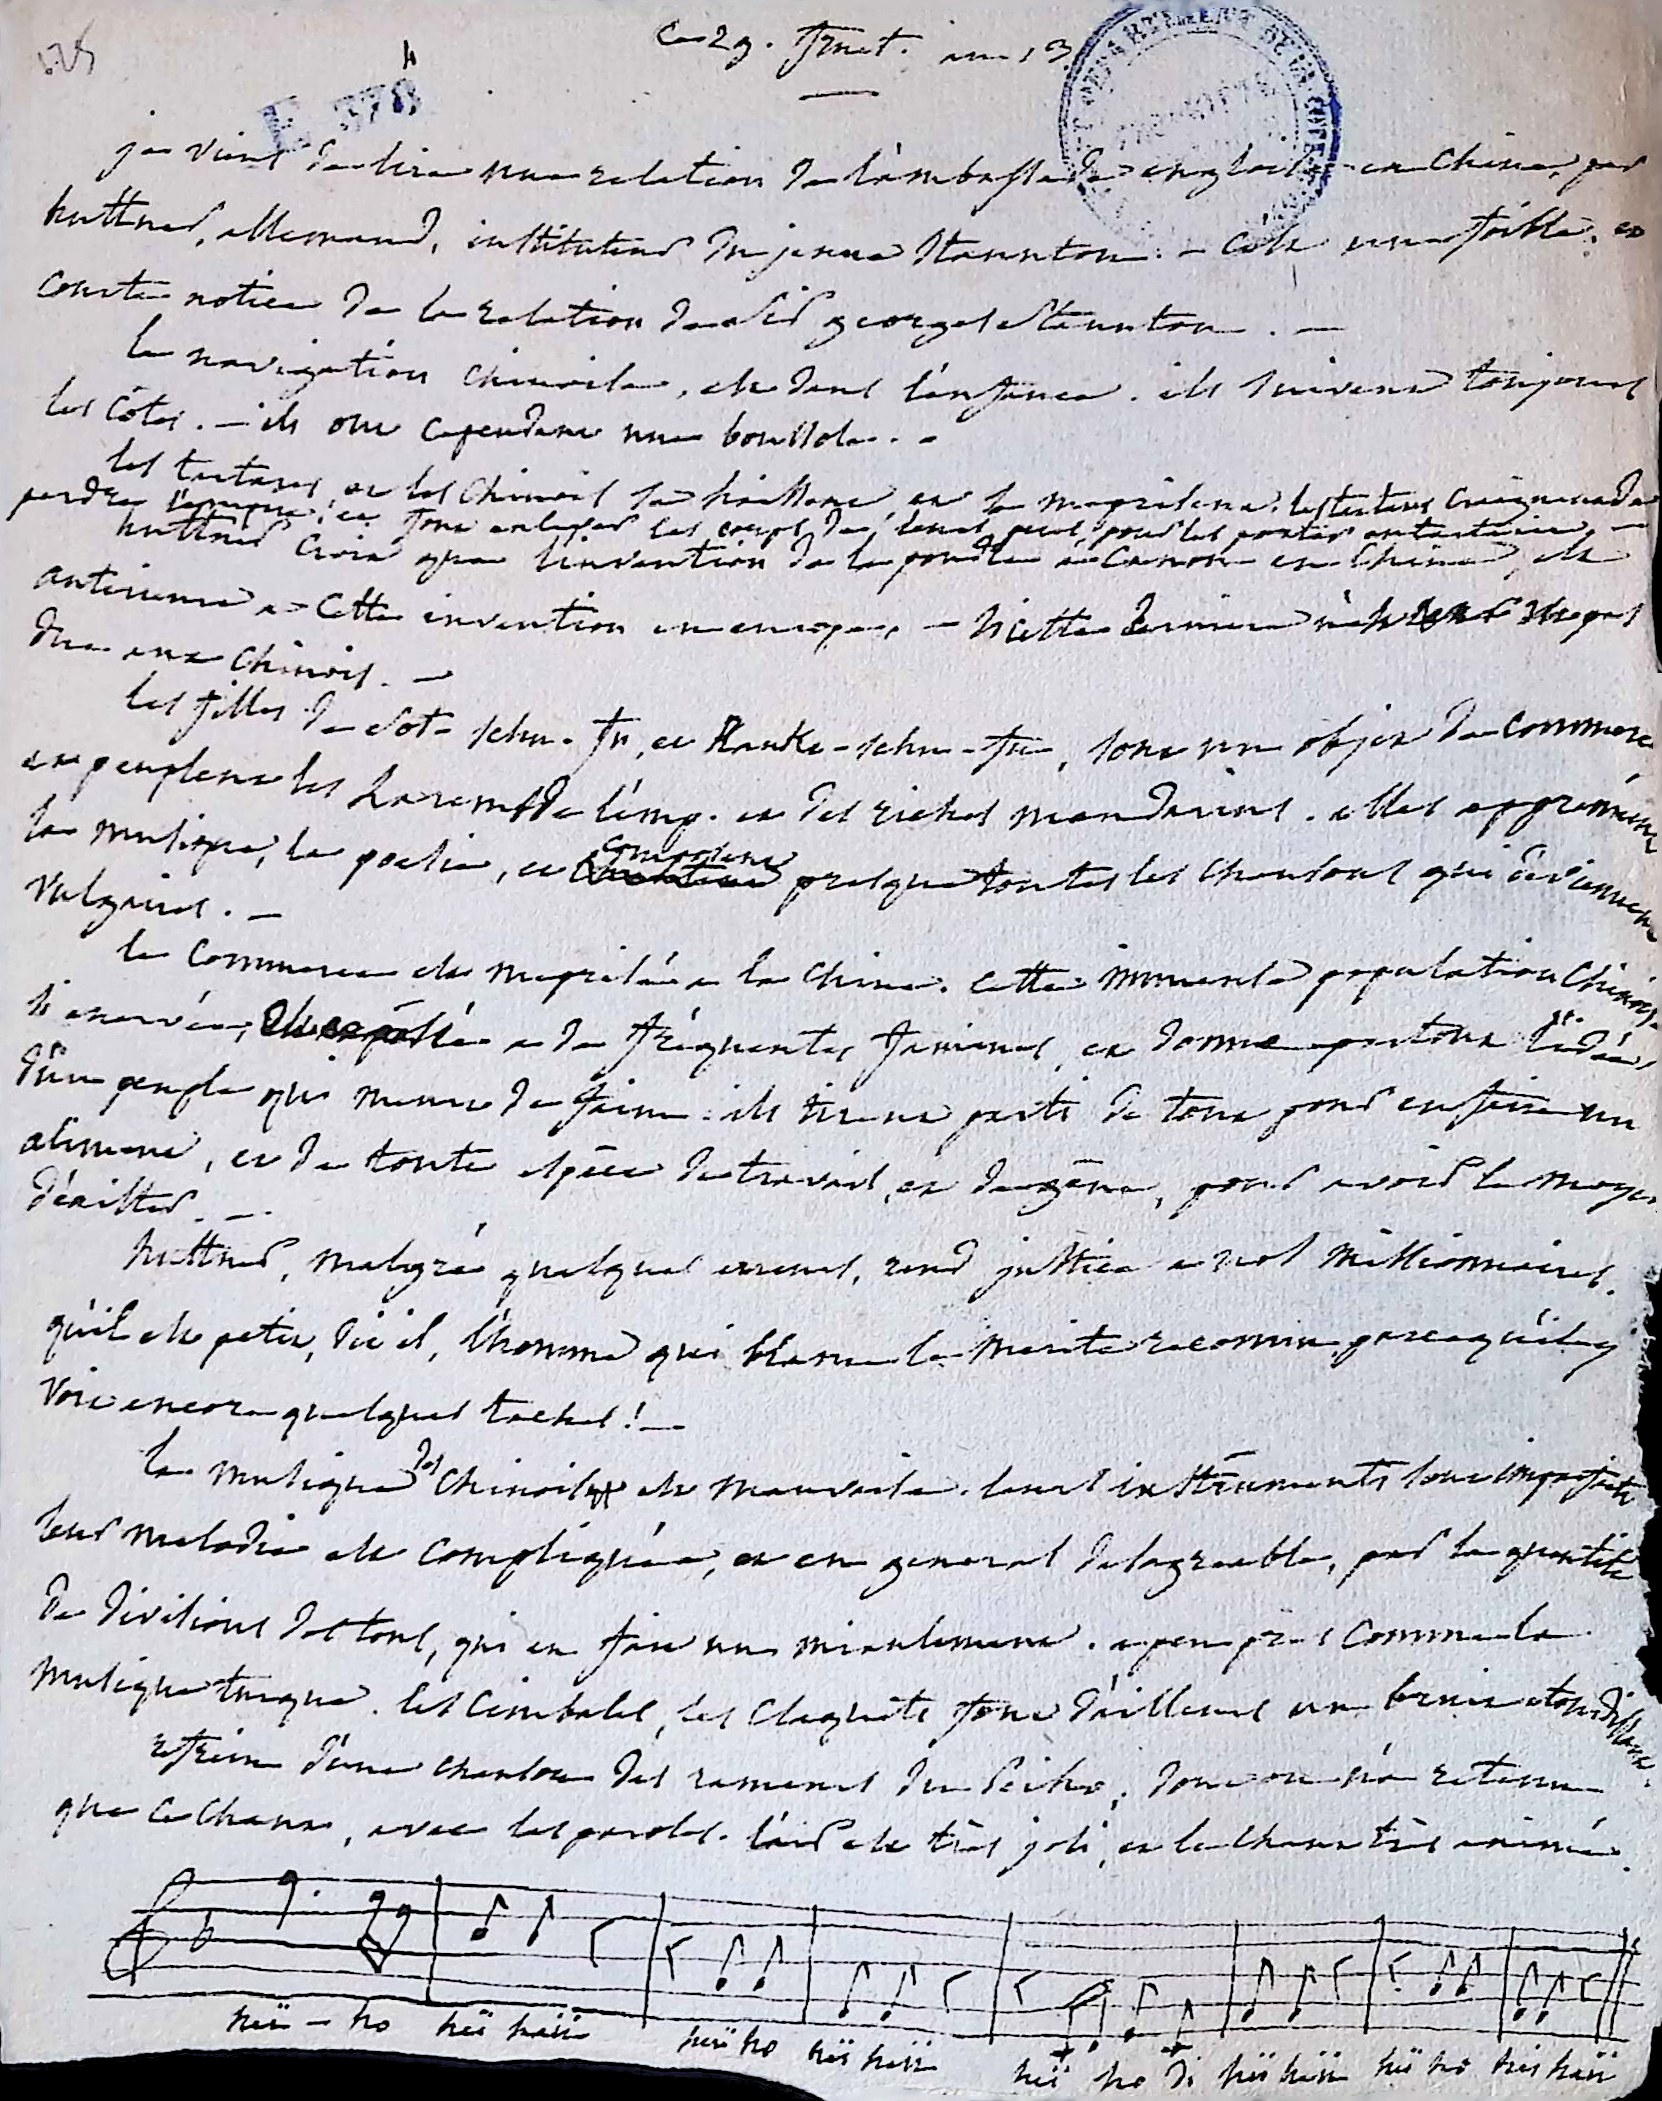 ce 29. fruct. an 13.
E 378
4
je viens de lire une relation de l'ambassade anglaise en Chine, par
huttner, allemand, instituteur du jeune Staunton. - c'est une foible, et
courte notice de la relation de Sir georges Staunton. -
la navigation chinoise, est dans l'enfance. ils suivent toujours
les côtes. - ils ont cependant une boussole. -
les tartares, et les Chinois se haïssent, et se méprisent. les tartares craignent de
perdre l'empire, et font enlever les corps de leurs pour les porter en tartarie. -
huttner croit que l'invention de la poudre à canon en Chine, est
antérieure à cette invention en europe, - si cette dernière n'est pas
due aux chinois. -
les filles de Sot-schu-fu, et Hanke-schu-fu, sont un objet de commerce
et peuplent les harems de l'emp. et des riches mandarins. elles apprennent
la musique, la poesie, et composent presque toutes les chansons qui deviennent
vulgaires. -
le commerce est meprisé a la Chine. cette immense population chinoise
si enervée, est exposée a de fréquentes famines, et donne partout l'idée
d'un peuple qui meurt de faim. ils tirent parti de tout pour en faire un
aliment, et de toute espèce de travail, et de gêne, pour avoir le moyen
d'exister. -
huttner, malgré quelques erreurs, rend justice a nos missionnaires.
qu'il est petit, dit il, l'homme qui blame le merite reconnu, parcequ'il y
voit encore quelques taches! -
la musique des Chinois est mauvaise. leurs instruments sont imparfaits
leur melodie est compliquée, et en general desagreable, par la quantité
de divisions des tons, qui en fait un miaulement. a peu près comme la
musique turque. les cimbales, les claquets font d'ailleurs un bruit etourdissant.
refrein d'une chanson des rameurs du Peiho, dont on n'a retenu
que ce chant, avec les paroles. l'air est très joli, et le chant très animé.
hii - ho hii haii hii ho hii haii hii ho di hii haii hii ho hii haii